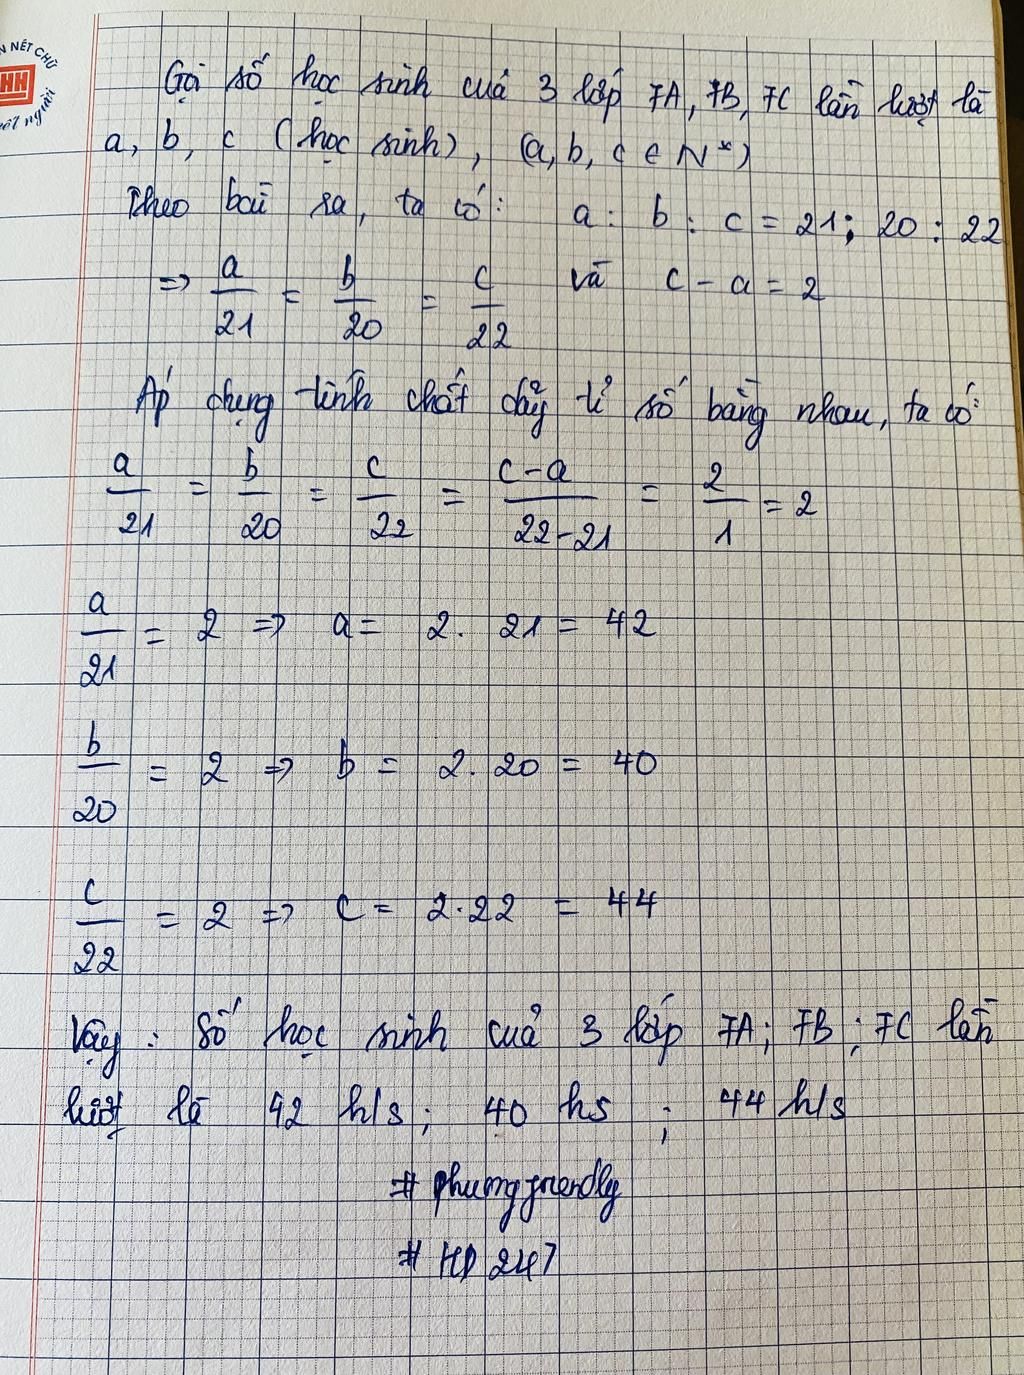 N NÉT CHỮ
HH
ết người
Gọi số học sinh của 3 lớp 7A, 7B, 7C lần lượt là
a, b, c (học sinh), (a, b, c ∈ N*)
Theo bài ra, ta có: a : b : c = 21 ; 20 : 22
=> a/21 = b/20 = c/22 và c - a = 2
Áp dụng tính chất dãy tỉ số bằng nhau, ta có:
a/21 = b/20 = c/22 = c-a/22-21 = 2/1 = 2
a/21 = 2 => a = 2. 21 = 42
b/20 = 2 => b = 2. 20 = 40
c/22 = 2 => c = 2.22 = 44
Vậy : Số học sinh của 3 lớp 7A; 7B; 7C lần
lượt là 42 h/s; 40 hs ; 44 h/s
# phungfriendly
# HD 247